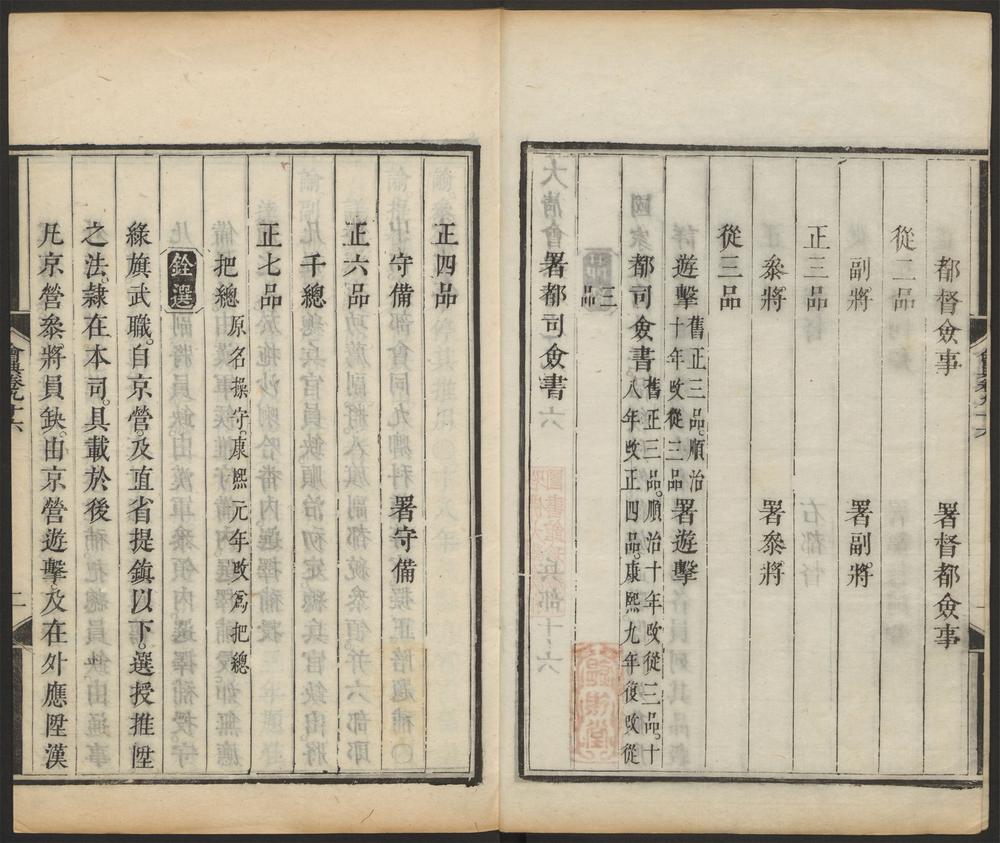 都督僉事　署督都僉事
從二品
副將　署副將
正三品
叅將　署叅將
從三品
遊擊　舊正三品。順治十年改從三品　署遊擊
都司僉書　舊正三品。順治十年改從三品。十八年改正四品。康熙九年復改從三品
署都司僉書
正四品
守備　署守備
正六品
千總
正七品
把總　原名操守。康熙元年改爲把總
銓選
綠旗武職。自京營。及直省提鎮以下。選授推陞
之法。隷在本司。具載於後
凡京營叅將員缺。由京營遊擊。及在外應陞漢